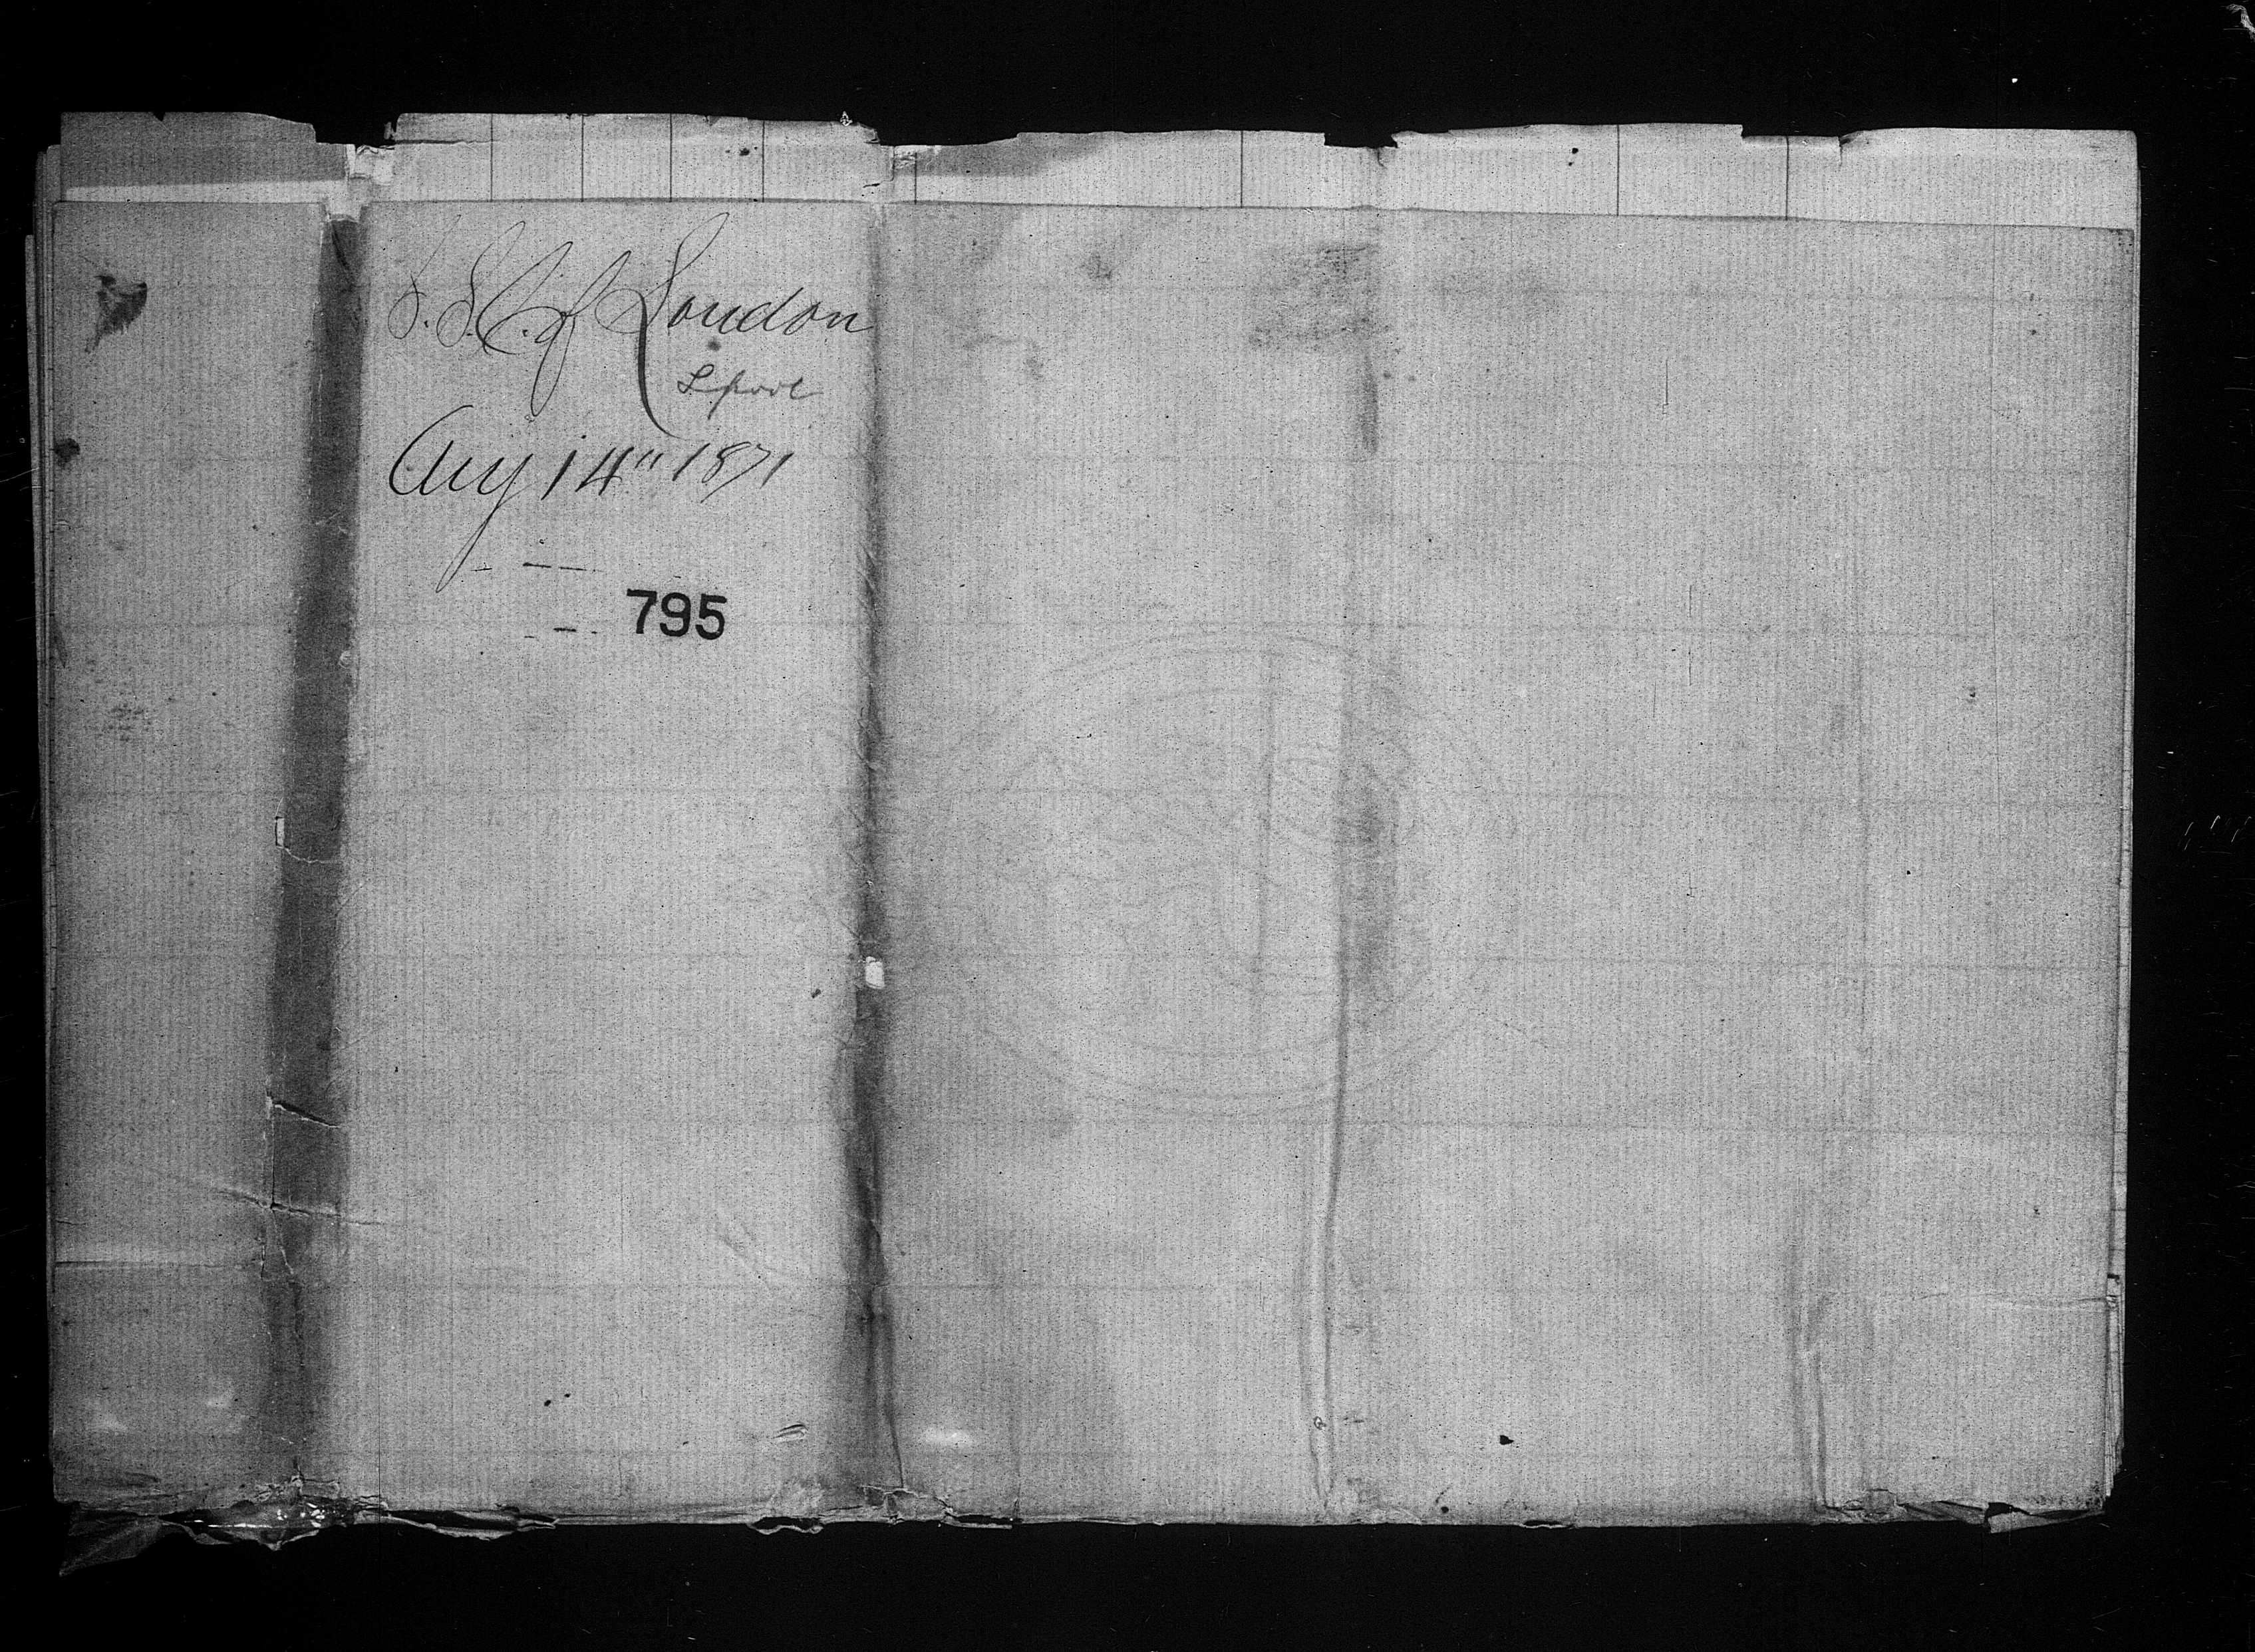 S.S. C. of London
Lpool
Aug 14" 1871
795